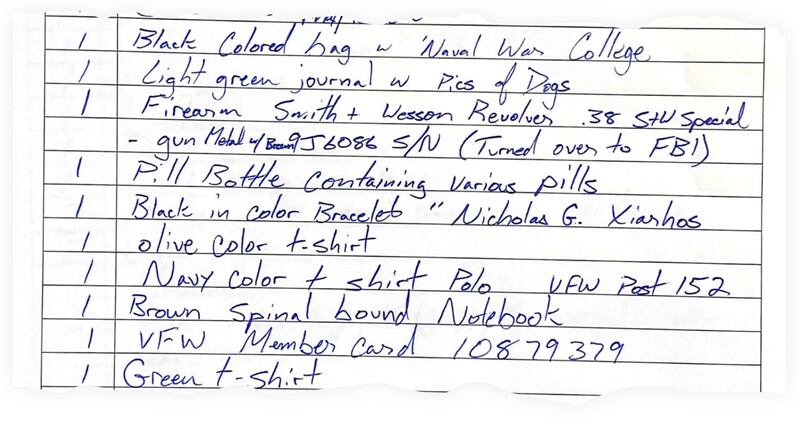 1 Black Colored bag w "Naval War College
1 Light green journal w Pics of Dogs
1 Firearm Smith + Wesson Revolver .38 S+W Special
- gun Metal w/ Brown 9J6086 S/N (Turned over to FBI)
1 Pill Bottle Containing various pills
1 Black in color Bracelet " Nicholas G. Xiarhos
1 olive color t-shirt
1 Navy color t shirt Polo VFW Post 152
1 Brown Spinal bound Notebook
1 VFW Member Card 10879379
1 Green t-shirt